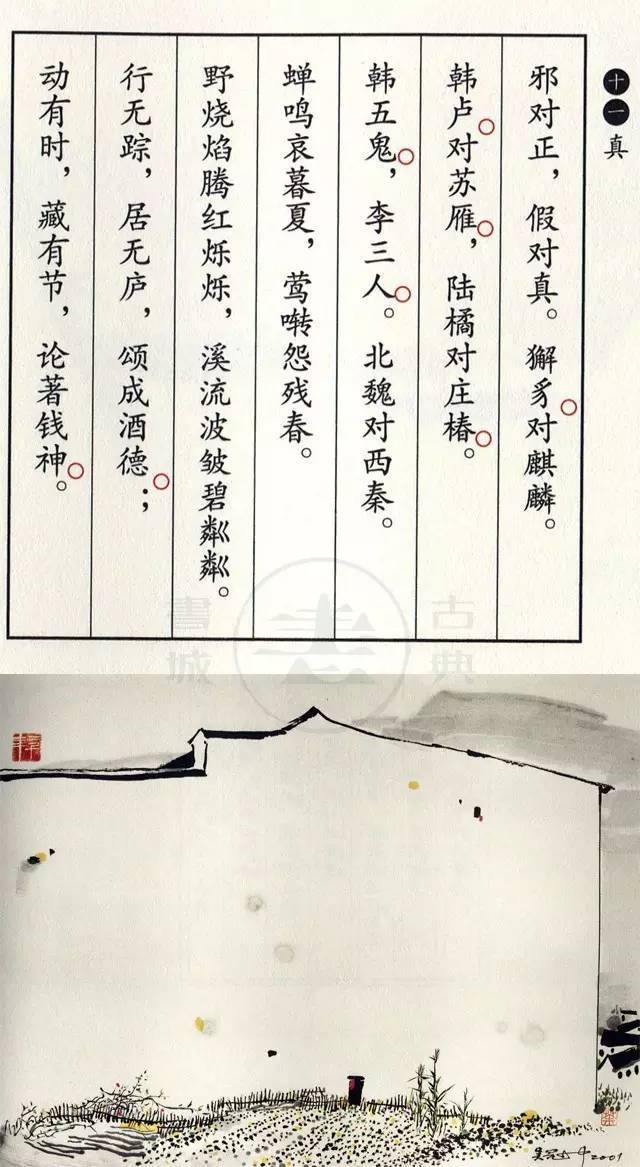 十一真
邪对正，假对真。獬豸对麒麟。
韩卢对苏雁，陆橘对庄椿。
韩五鬼，李三人。北魏对西秦。
蝉鸣哀暮夏，莺啭怨残春。
野烧焰腾红烁烁，溪流波皱碧粼粼。
行无踪，居无庐，颂成酒德；
动有时，藏有节，论著钱神。
古典
書城
2001